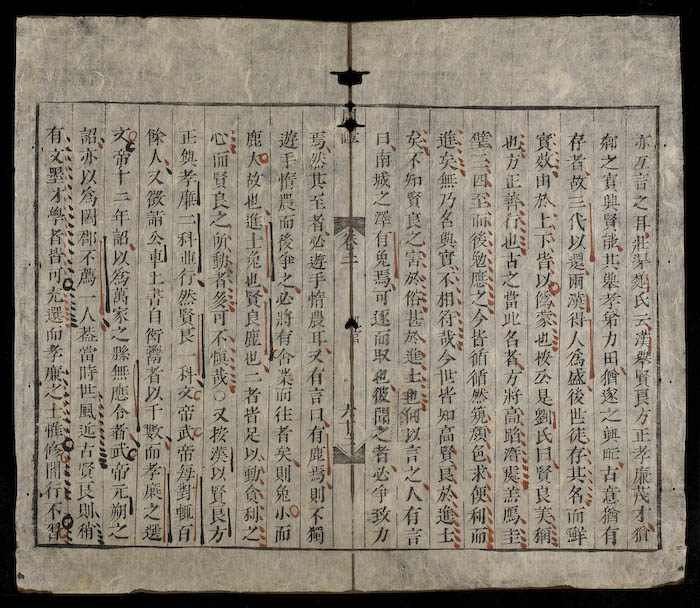 亦互言之耳莊渠魏氏云漢舉賢良方正孝廉茂才猶
鄉之賓興賢能其舉孝弟力田猶遂之興甿古意猶有
存者故三代以還兩漢得人爲盛後世徒存其名而鮮
實效由於上下皆以僞蒙也按公是劉氏曰賢良美稱
也方正善行也古之當此名者方將高蹈處善馬圭
璧三四至而後勉應之今皆循循然顏色求便利而
進矣無乃名與實不相符哉今世皆知高賢良於進士
矣不知賢良之害於俗甚於進士也何以言之人有言
曰南城之澤有兔焉可逐而取也彼聞之者必爭致力
卷二
焉然其至者必遊手惰農耳又有言曰有鹿焉則不獨
遊手惰農而後爭之必將有舍業而往者矣則兔小而
鹿大故也進士兔也賢良鹿也二者皆足以動貪利之
心而賢良之所動者多可不慎哉○又按漢以賢良方
正與孝廉二科並行然賢良一科文帝武帝每對輒百
餘人又徵詣公車上書自衒鬻者以千數而孝廉之選
文帝十二年詔以爲萬家之縣無應令者武帝元朔之
詔亦以爲闔郡不薦一人蓋當時世風近古賢良則稍
有文墨才學者皆可充選而孝廉之士惟修閒行不習